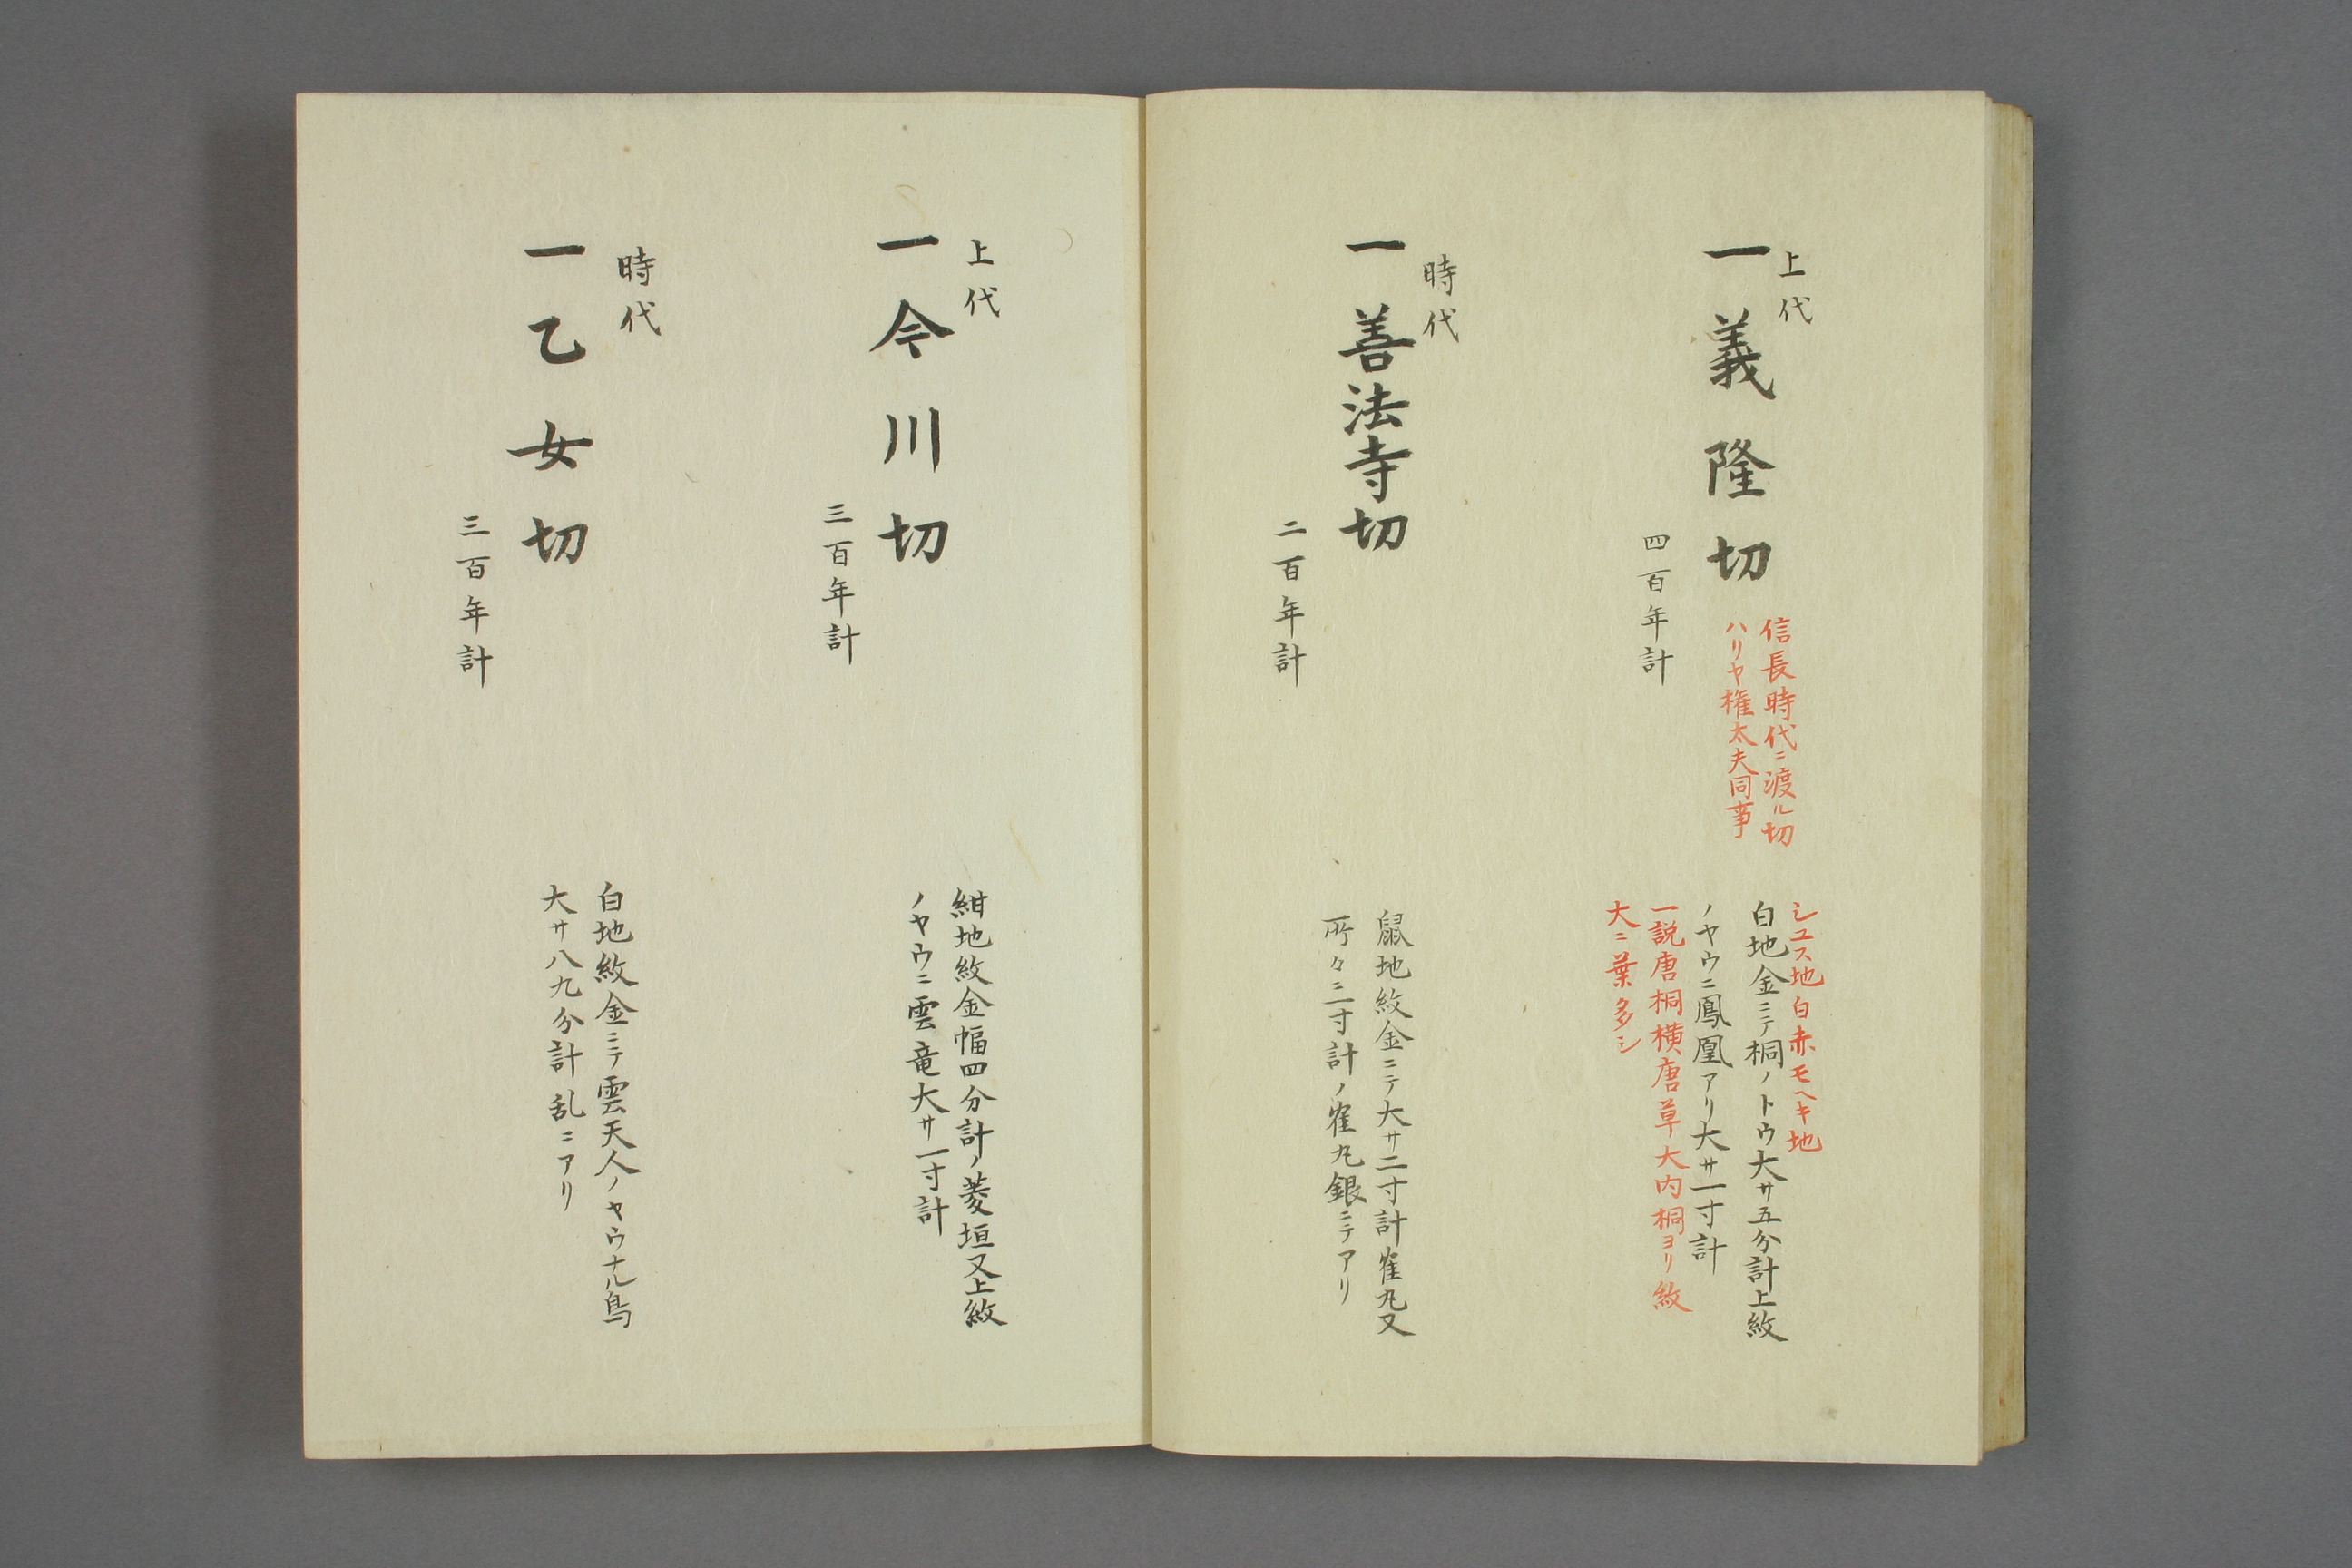 上代
一義隆切
信長時代ニ渡ル切
ハリヤ権太夫同事
四百年計
シユス地白赤モヘキ地
白地金ニテ桐ノトウ大サ五分計上紋
ノヤウニ鳳凰アリ大サ一寸計
一説唐桐横唐草大内桐ヨリ紋
大ニ葉多シ
時代
一善法寺切
二百年計
鼠地紋金ニテ大サ二寸計隺丸又
所々ニ二寸計ノ隺丸銀ニテアリ
上代
一今川切
三百年計
紺地紋金幅四分計ノ菱垣又上紋
ノヤウニ雲竜大サ一寸計
時代
一乙女切
三百年計
白地紋金ニテ雲天人ノヤウナル鳥
大サ八九分計乱ニアリ